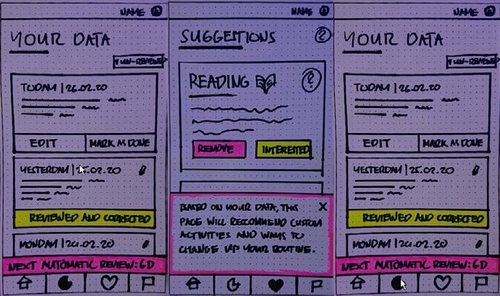 NAME
YOUR DATA
TODAY | 26.02.20
EDIT
MARK M DONE
YESTERDAY | 25.02.20
REVIEWED AND CORRECTED
MONDAY | 24.02.20
NEXT AUTOMATIC REVIEW: 6D
NAME
SUGGESTIONS
?
READING
?
REMOVE
INTERESTED
BASED ON YOUR DATA, THIS
PAGE WILL RECOMMEND CUSTOM
ACTIVITIES AND WAYS TO
CHANGE UP YOUR ROUTINE.
X
NAME
YOUR DATA
TODAY | 26.02.20
EDIT
MARK M DONE
YESTERDAY | 25.02.20
REVIEWED AND CORRECTED
MONDAY | 24.02.20
NEXT AUTOMATIC REVIEW: 6D